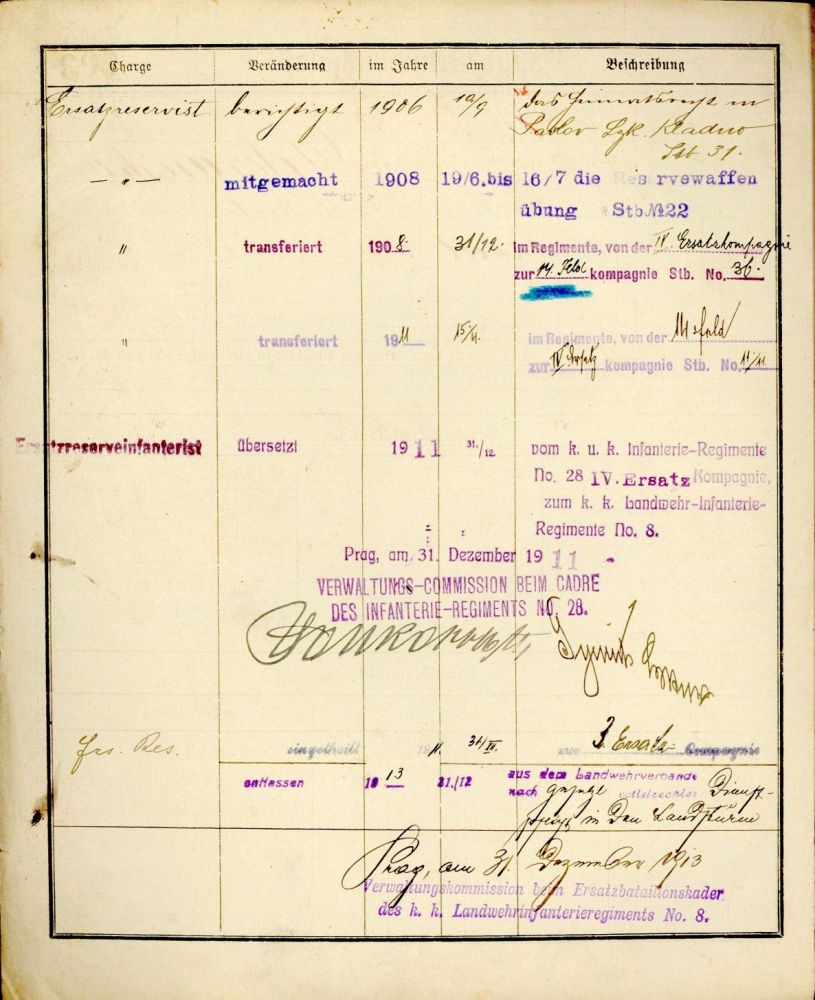 Charge Veränderung im Jahre am Beschreibung
Ersatzreservist berichtigt 1906 19/9 das Heimatsrecht in
Pavlov Bzk. Kladno
Stb 31.
— " — mitgemacht 1908 19/6. bis 16/7 die Reservewaffen
übung Stb№22
" transferiert 1908. 31/12. im Regimente, von der IV. Ersatzkompagnie
zur 14. Feld kompagnie Stb. No. 36.
" transferiert 1911 im Regimente, von der 14. feld
zur IV. Ersatz kompagnie Stb. No. 11/11
Ersatzreserveinfanterist übersetzt 1911 31./12. vom k. u. k. Infanterie-Regimente
No. 28 IV. Ersatz Kompagnie,
zum k. k. Landwehr-Infanterie-
Regimente No. 8.
Prag, am 31. Dezember 1911
VERWALTUNGS-COMMISSION BEIM CADRE
DES INFANTERIE-REGIMENTS No. 28.
Ers. Res. eingetheilt zur 3. Ersatz- Compagnie
entlassen 1913 31./12 aus dem Landwehrverbande
nach vollstreckter Dienst-
pflicht in den Landsturm
Prag, am 31. Dezember 1913
Verwaltungskommission beim Ersatzbataillonskader
des k. k. Landwehrinfanterieregiments No. 8.